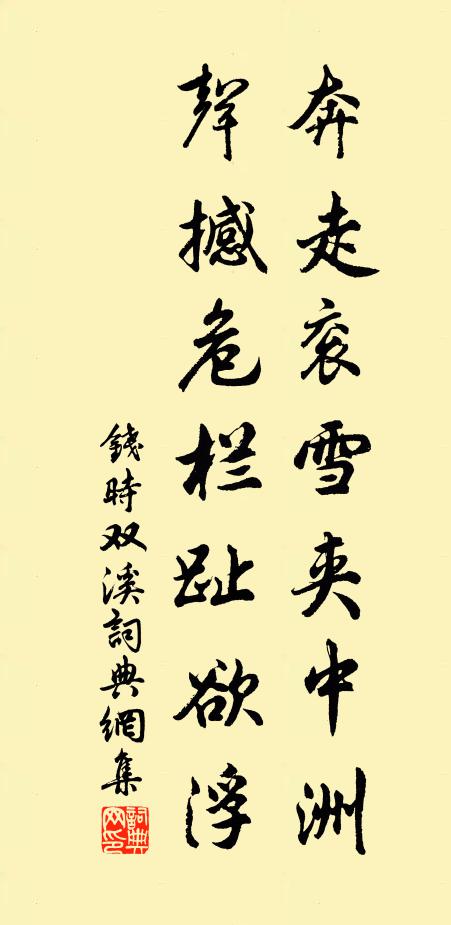 奔走衮雪夹中洲
聲撼危栏趾欲浮
錢時双溪詞典網集
詞典网印